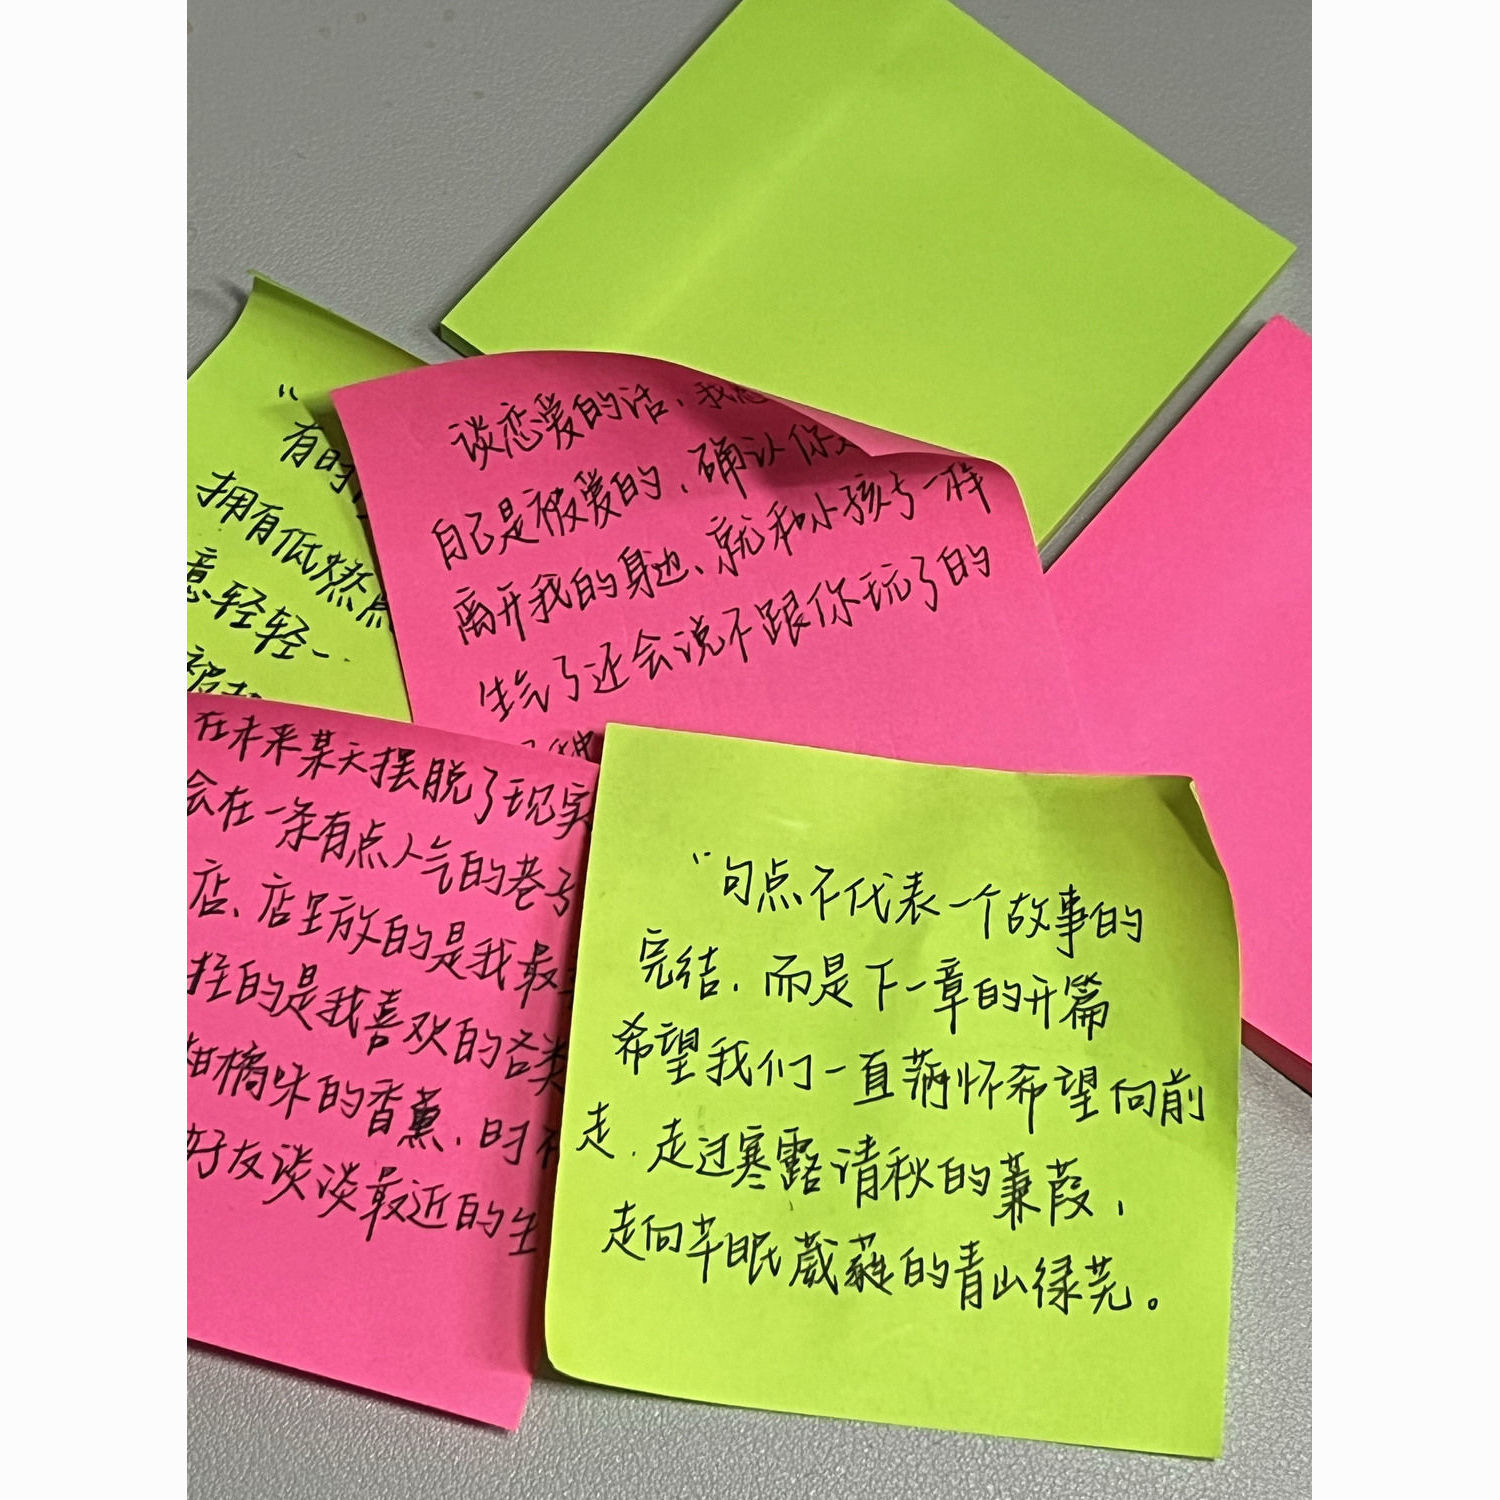 “
有时
拥有低燃点
意轻轻一
谈恋爱的话，我
自己是被爱的，确认你
离开我的身边、就和小孩子一样
生气了还会说不跟你玩了的
在未来某天摆脱了现实
会在一条有点人气的巷子
店、店里放的是我最
挂的是我喜欢的各类
柑橘味的香薰，时不
好友谈谈最近的生
“句点不代表一个故事的
完结，而是下一章的开篇
希望我们一直满怀希望向前
走，走过寒露清秋的蒹葭，
走向芊眠葳蕤的青山绿芜。